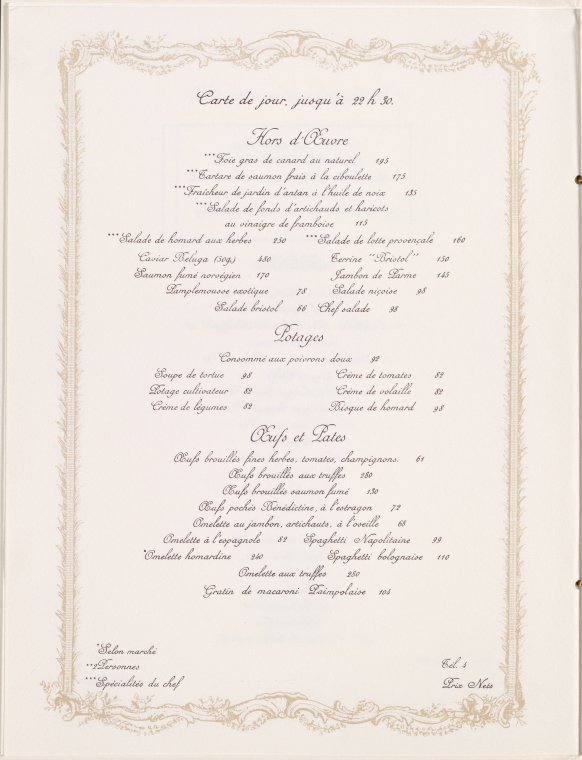 Carte de jour, jusqu'à 22 h 30.
Hors d'Œuvre
***Foie gras de canard au naturel 195
***Tartare de saumon frais à la ciboulette 175
***Fraîcheur de jardin d'antan à l'huile de noix 135
***Salade de fonds d'artichauds et haricots
au vinaigre de framboise 115
***Salade de homard aux herbes 250 ***Salade de lotte provençale 160
Caviar Béluga (50g.) 480 Terrine "Bristol" 150
Saumon fumé norvégien 170 Jambon de Parme 145
Pamplemousse exotique 78 Salade niçoise 98
Salade bristol 66 Chef salade 98
Potages
Consomme aux poivrons doux 92
Soupe de tortue 98 Crème de tomates 82
Potage cultivateur 82 Crème de volaille 82
Crème de légumes 82 Bisque de homard 98
Œufs et Pates
Œufs brouillés fines herbes, tomates, champignons. 61
Œufs brouillés aux truffes 280
Œufs brouillés saumon fumé 130
Œufs pochés Bénédictine, à l'estragon 72
Omelette au jambon, artichauts, à l'oseille 68
Omelette à l'espagnole 82 Spaghetti Napolitaine 99
*Omelette homardine 240 Spaghetti bolognaise 110
Omelette aux truffes 280
Gratin de macaroni Paimpolaise 104
*Selon marché
**2Personnes Tél. 4
***Spécialités du chef Prix Nets